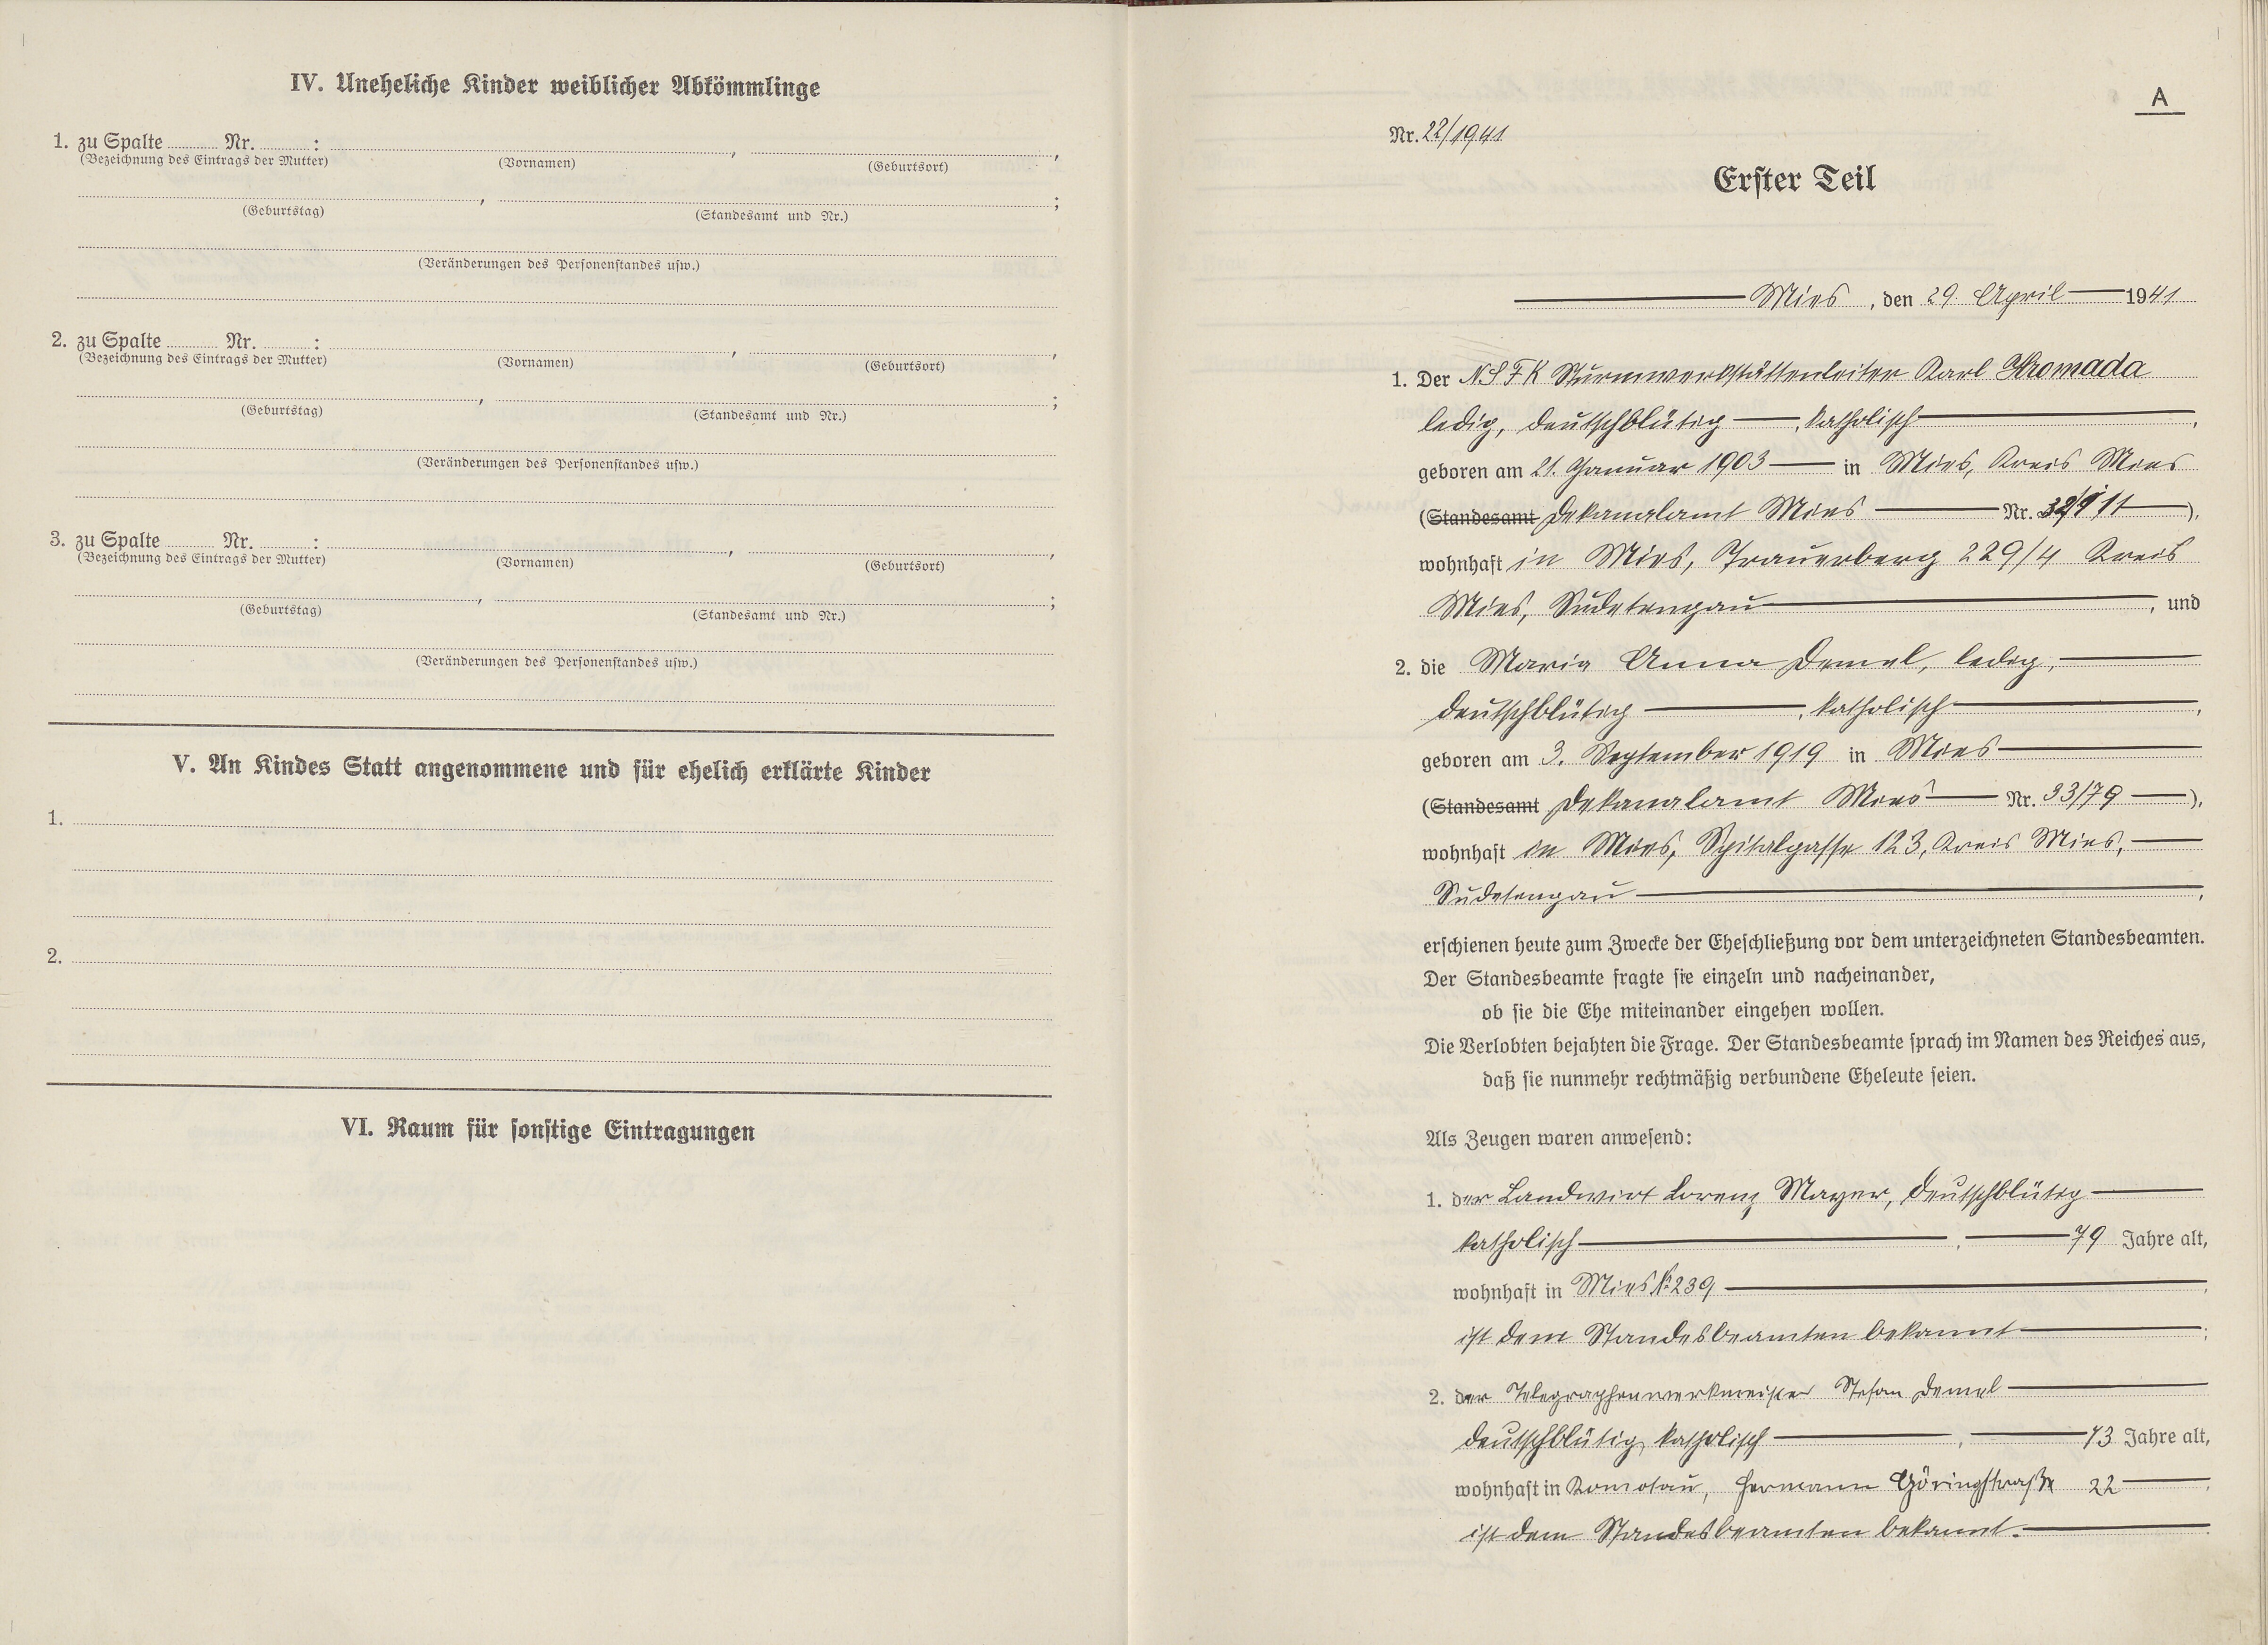 IV. Uneheliche Kinder weiblicher Abkömmlinge
1. zu Spalte ........ Nr. ........ : ........ , ........ ,
(Bezeichnung des Eintrags der Mutter) (Vornamen) (Geburtsort)
........ , ........ ;
(Geburtstag) (Standesamt und Nr.)
(Veränderungen des Personenstandes usw.)
2. zu Spalte ........ Nr. ........ : ........ , ........ ,
(Bezeichnung des Eintrags der Mutter) (Vornamen) (Geburtsort)
........ , ........ ;
(Geburtstag) (Standesamt und Nr.)
(Veränderungen des Personenstandes usw.)
3. zu Spalte ........ Nr. ........ : ........ , ........ ,
(Bezeichnung des Eintrags der Mutter) (Vornamen) (Geburtsort)
........ , ........ ;
(Geburtstag) (Standesamt und Nr.)
(Veränderungen des Personenstandes usw.)
V. An Kindes Statt angenommene und für ehelich erklärte Kinder
1.
2.
VI. Raum für sonstige Eintragungen
A
Nr. 22/1941
Erster Teil
Mies, den 29. April 1941
1. Der NSFK Sturmwerkstättenleiter Karl Hromada
ledig, deutschblütig, katholisch,
geboren am 21. Januar 1903 in Mies, Kreis Mies
(Standesamt Dekanalamt Mies Nr. 11),
wohnhaft in Mies, Trauerberg 229/4 Kreis
Mies, Sudetengau, und
2. die Maria Anna Demel, ledig,
deutschblütig, katholisch,
geboren am 3. September 1919 in Mies
(Standesamt Dekanalamt Mies Nr. 33/79),
wohnhaft in Mies, Spitalgasse 123, Kreis Mies,
Sudetengau,
erschienen heute zum Zwecke der Eheschließung vor dem unterzeichneten Standesbeamten.
Der Standesbeamte fragte sie einzeln und nacheinander,
ob sie die Ehe miteinander eingehen wollen.
Die Verlobten bejahten die Frage. Der Standesbeamte sprach im Namen des Reiches aus,
daß sie nunmehr rechtmäßig verbundene Eheleute seien.
Als Zeugen waren anwesend:
1. der Landwirt Lorenz Mayer, deutschblütig
katholisch, 79 Jahre alt,
wohnhaft in Mies № 239,
ist dem Standesbeamten bekannt;
2. der Telegraphenwerkmeister Stefan Demel
deutschblütig, katholisch, 73 Jahre alt,
wohnhaft in Komotau, Hermann Göringstraße 22,
ist dem Standesbeamten bekannt.